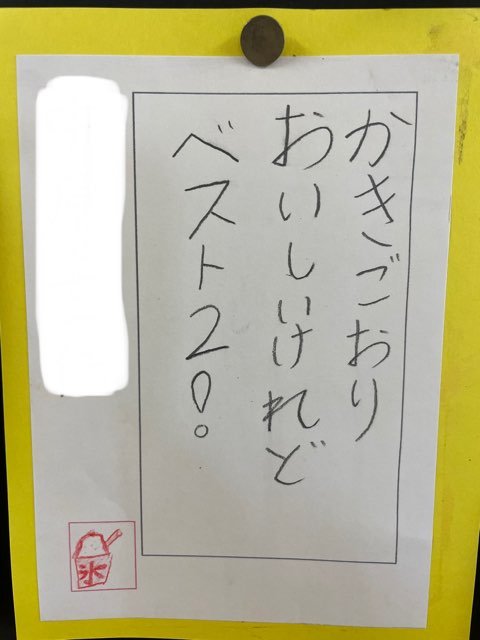 かきごおり
おいしいけれど
ベスト2!
氷